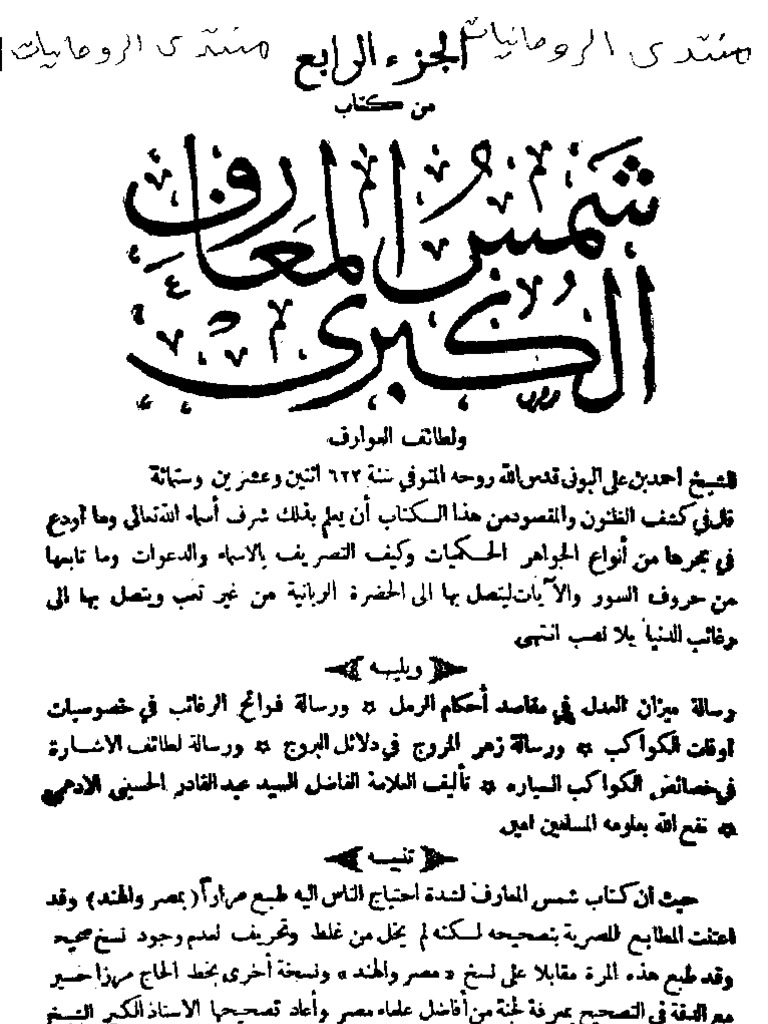 منتدى الروحانيات
الجزء الرابع
منتدى الروحانيات
من كتاب
شمس المعارف
الكبرى
ولطائف العوارف
للشيخ احمد بن على البونى قدس الله روحه المتوفي سنة ٦٢٢ اثنين وعشرين وستمائة
قال في كشف الظنون والمقصود من هذا الكتاب أن يعلم بذلك شرف أسماء الله تعالى وما أودع
في بحرها من أنواع الجواهر الحكميات وكيف التصريف بالاسماء والدعوات وما تابعها
من حروف السور والآيات ليتصل بها الى الحضرة الربانية من غير تعب ويتصل بها الى
رغائب الدنيا بلا نصب انتهى
ويليه
رسالة ميزان العدل في مقاصد أحكام الرمل ۞ ورسالة فواتح الرغائب في خصوصيات
اوقات الكواكب ۞ ورسالة زهر المروج في دلائل البروج ۞ ورسالة لطائف الاشارة
في خصائص الكواكب السياره ۞ تأليف العلامة الفاضل السيد عبد القادر الحسينى الادهمى
۞ نفع الله بعلومه المسلمين امين
تنبيه
حيث أن كتاب شمس المعارف لشدة احتياج الناس اليه طبع مراراً (بمصر والهند) وقد
اعتنت المطابع المصرية بتصحيحه لكنه لم يخل من غلط وتحريف لعدم وجود نسخ صحيحة
وقد طبع هذه المرة مقابلا على نسخ « مصر والهند » ونسخة أخرى بخط الحاج ميرزا حسير
مع الدقة في التصحيح بمعرفة لجنة من أفاضل علماء مصر وأعاد تصحيحها الاستاذ الكبير الشيخ